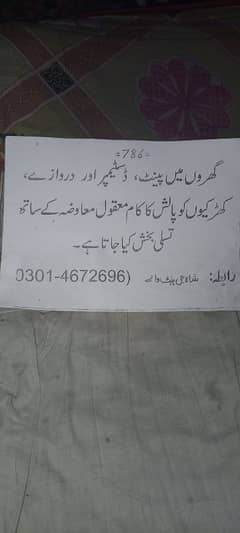 =786=
گھروں میں پینٹ، ڈسٹیمپر اور دروازے،
کھڑکیوں کو پالش کا کام معقول معاوضہ کے ساتھ
تسلی بخش کیا جاتا ہے۔
رابطہ: پینٹ والے (0301-4672696)